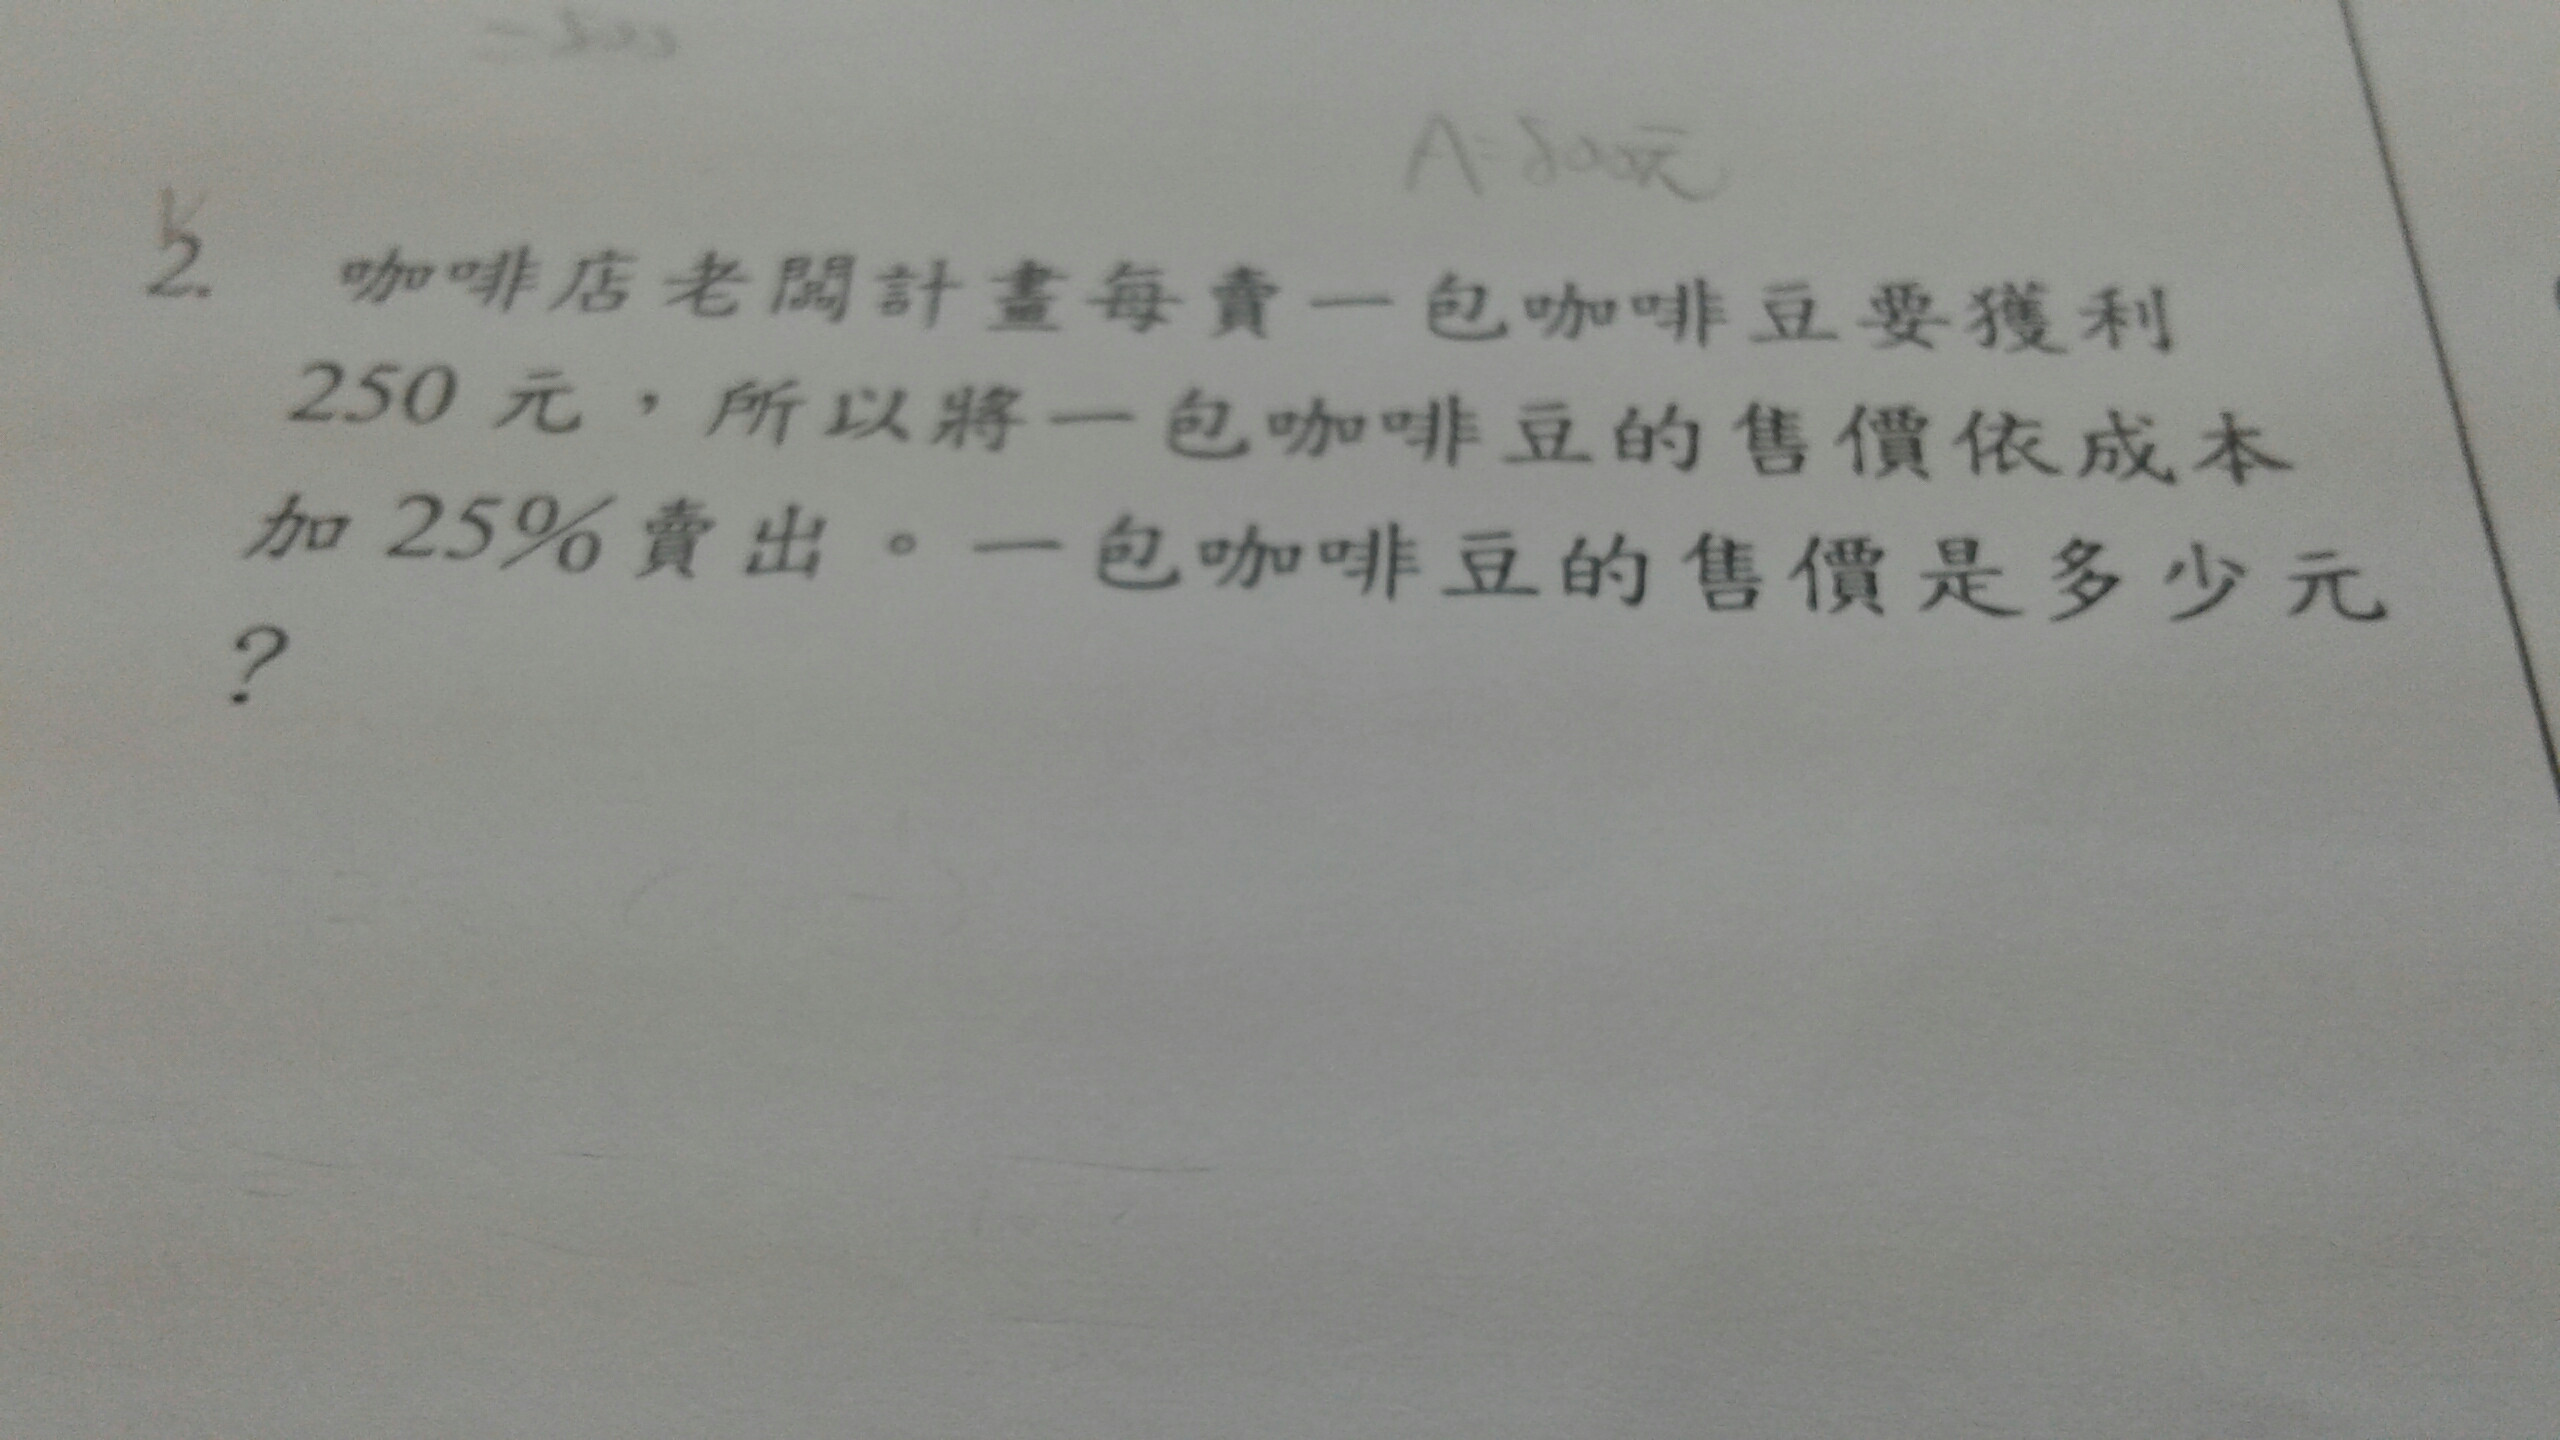 A=800元
2. 咖啡店老闆計畫每賣一包咖啡豆要獲利
250 元，所以將一包咖啡豆的售價依成本
加 25%賣出。一包咖啡豆的售價是多少元
?